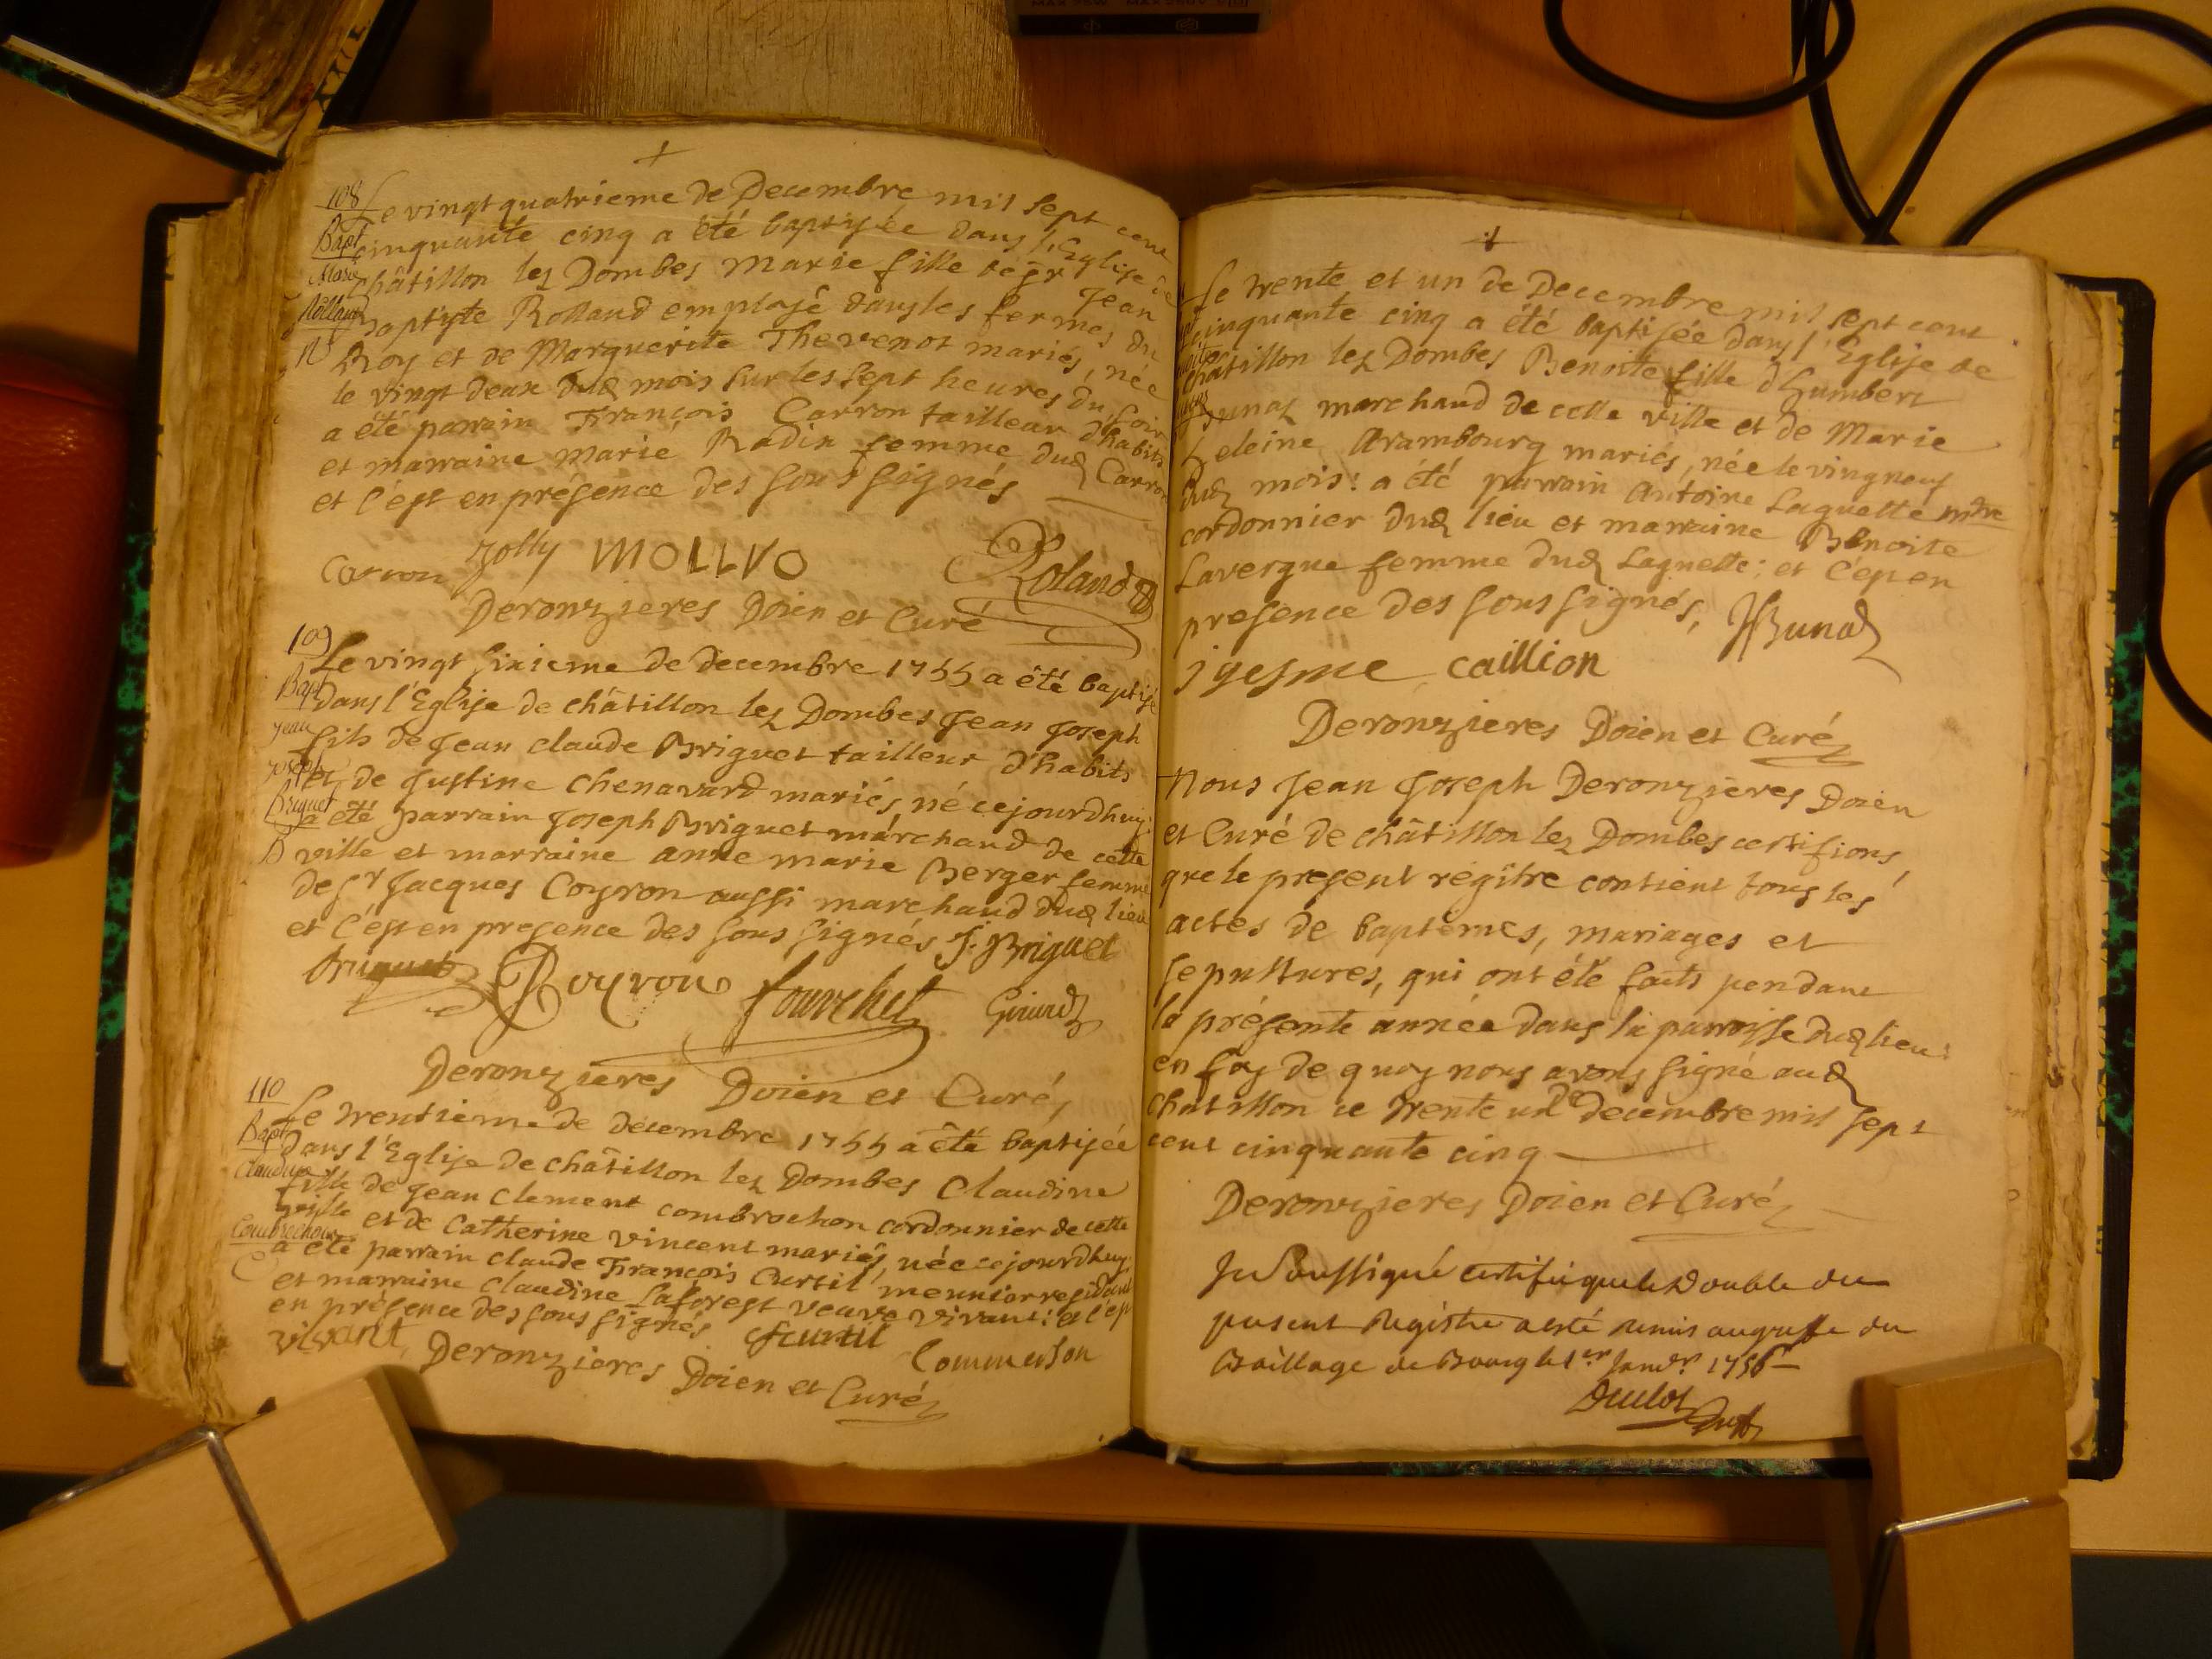 +
108
Le vingt quatrieme de Decembre mil sept cent
Bapt cinquante cinq a été baptisée dans l'Eglise de
Marie châtillon lez Dombes Marie fille de sr Jean
Rolland baptiste Rolland employé dans les fermes du
Roy et de Marguerite Thevenot mariés, née
le vingt deux dud mois sur les sept heures du soir
a été parrain François Carron tailleur d'habits
et marraine Marie Radix femme dud Carron
et c'est en présence des sous signés
Carron Jolly MOLLVO Rolandd
Deronzieres Doien et Curé
109
Le vingt sixieme de decembre 1755 a été baptisé
Bapt dans l'Eglise de châtillon lez Dombes Jean Joseph
jean fils de Jean claude Briguet tailleur d'habits
joseph et de Justine Chenavard mariés, né cejourdhuy:
Briguet a été parrain Joseph Briguet marchand de cette
ville et marraine anne marie Berger femme
de sr Jacques Coyron aussi marchand dud lieu
et c'est en presence des sous signés J. Briguet
briguet fourchet Girard
Deronzieres Doien et Curé,
110
Le trentieme de decembre 1755 a été baptisée
Bapt dans l'Eglise de châtillon lez Dombes Claudine
Claudine fille de Jean Clement combrochon cordonnier de cette
ville et de Catherine vincent mariés, née cejourdhuy,
Combrochon a été parrain claude François Curtil meunier residant
C et marraine Claudine Laforest veuve vivant: et c'est
en présence des sous signés fcurtil
vivant, Commerson
Deronzieres Doien et Curé
+
Le trente et un de Decembre mil sept cent
cinquante cinq a été baptisée dans l'Eglise de
châtillon lez Dombes Benoite fille d'humbert
Bunaz marchand de cette ville et de Marie
heleine Arambourg mariés, née le vingneuf
dud mois: a été parrain Antoine Laguette mtre
cordonnier dud lieu et marraine Benoite
Lavergne femme dud Laguette: et c'est en
presence des sous signés, HBunad
jyesme caillion
Deronzieres Doien et Curé
Nous Jean Joseph Deronzieres Doien
et Curé de châtillon lez Dombes certifions,
que le present régitre contient tous les
actes de baptêmes, mariages et
sepultures, qui ont été faits pendant
la présente année dans la parroisse dud lieu:
en foy de quoy nous avons signé aud
chatillon ce trente un de decembre mil sept
cent cinquante cinq
Deronzieres Doien et Curé
Je Soussigné certifie que le Double du
present Registre a esté remis au greffe du
Baillage de Bourg le 1er Janvr 1756